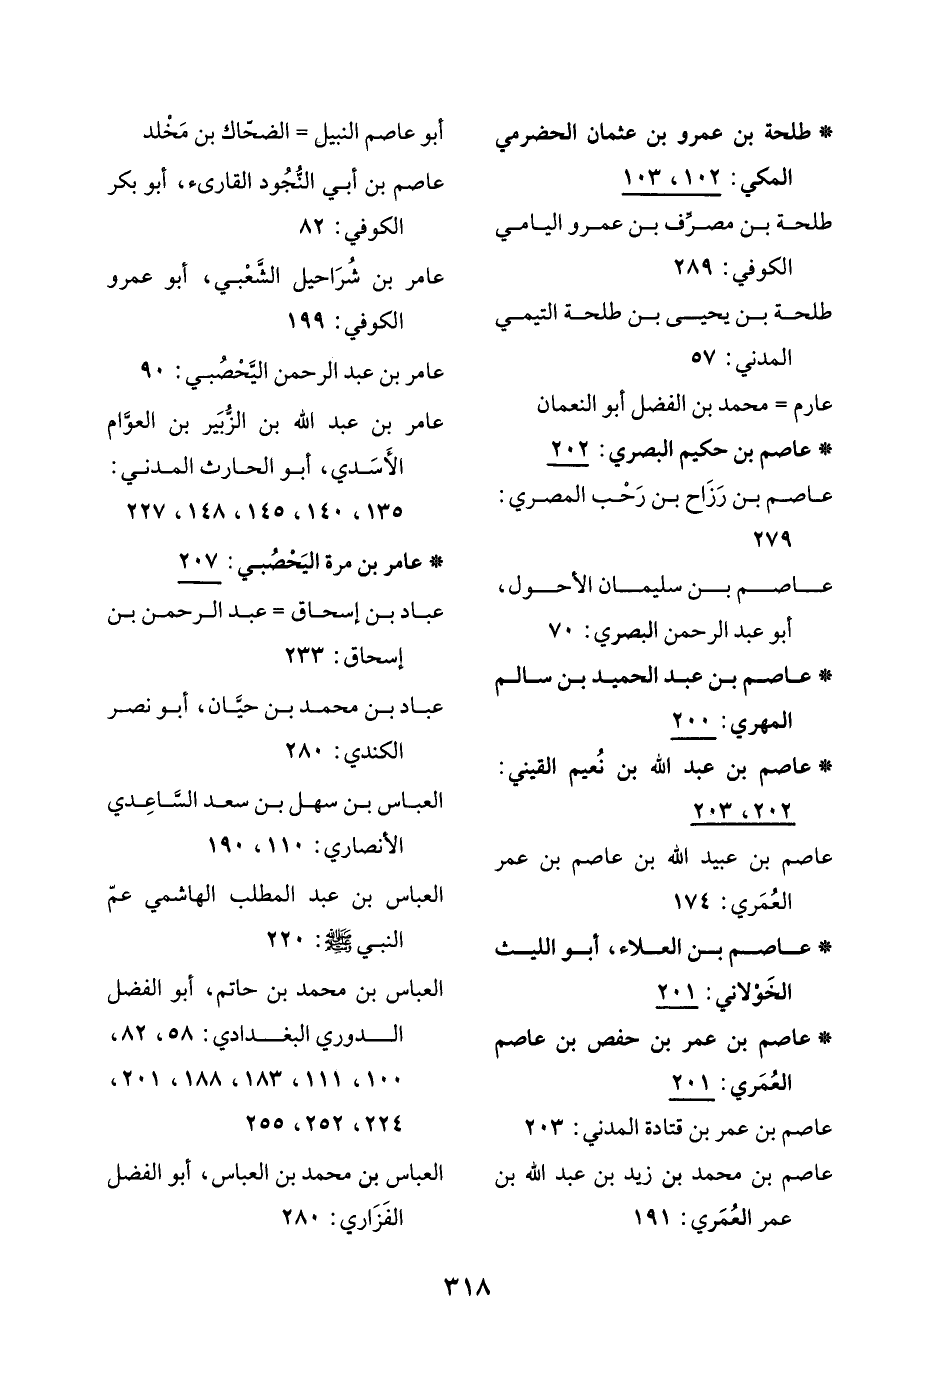 * طلحة بن عمرو بن عثمان الحضرمي
المكي: ١٠٢، ١٠٣
طلحة بن مصرِّف بن عمرو اليامي
الكوفي: ٢٨٩
طلحة بن يحيى بن طلحة التيمي
المدني: ٥٧
عارم = محمد بن الفضل أبو النعمان
* عاصم بن حكيم البصري: ٢٠٢
عاصم بن رَزَاح بن رَحْب المصري:
٢٧٩
عاصم بن سليمان الأحول،
أبو عبد الرحمن البصري: ٧٠
* عاصم بن عبد الحميد بن سالم
المهري: ٢٠٠
* عاصم بن عبد الله بن نُعيم القيني:
٢٠٢، ٢٠٣
عاصم بن عبيد الله بن عاصم بن عمر
العُمَري: ١٧٤
* عاصم بن العلاء، أبو الليث
الخَوْلاني: ٢٠١
* عاصم بن عمر بن حفص بن عاصم
العُمَري: ٢٠١
عاصم بن عمر بن قتادة المدني: ٢٠٣
عاصم بن محمد بن زيد بن عبد الله بن
عمر العُمَري: ١٩١
أبو عاصم النبيل = الضحّاك بن مَخْلد
عاصم بن أبي النُّجُود القارىء، أبو بكر
الكوفي: ٨٢
عامر بن شُرَاحيل الشَّعْبي، أبو عمرو
الكوفي: ١٩٩
عامر بن عبد الرحمن اليَّحْصُبي: ٩٠
عامر بن عبد الله بن الزُّبَير بن العوَّام
الأَسَدي، أبو الحارث المدني:
١٣٥، ١٤٠، ١٤٥، ١٤٨، ٢٢٧
* عامر بن مرة اليَحْصُبي: ٢٠٧
عباد بن إسحاق = عبد الرحمن بن
إسحاق: ٢٣٣
عباد بن محمد بن حيَّان، أبو نصر
الكندي: ٢٨٠
العباس بن سهل بن سعد السَّاعِدي
الأنصاري: ١١٠، ١٩٠
العباس بن عبد المطلب الهاشمي عمّ
النبي ﷺ: ٢٢٠
العباس بن محمد بن حاتم، أبو الفضل
الدوري البغدادي: ٥٨، ٨٢،
١٠٠، ١١١، ١٨٣، ١٨٨، ٢٠١،
٢٢٤، ٢٥٢، ٢٥٥
العباس بن محمد بن العباس، أبو الفضل
الفَزَاري: ٢٨٠
٣١٨